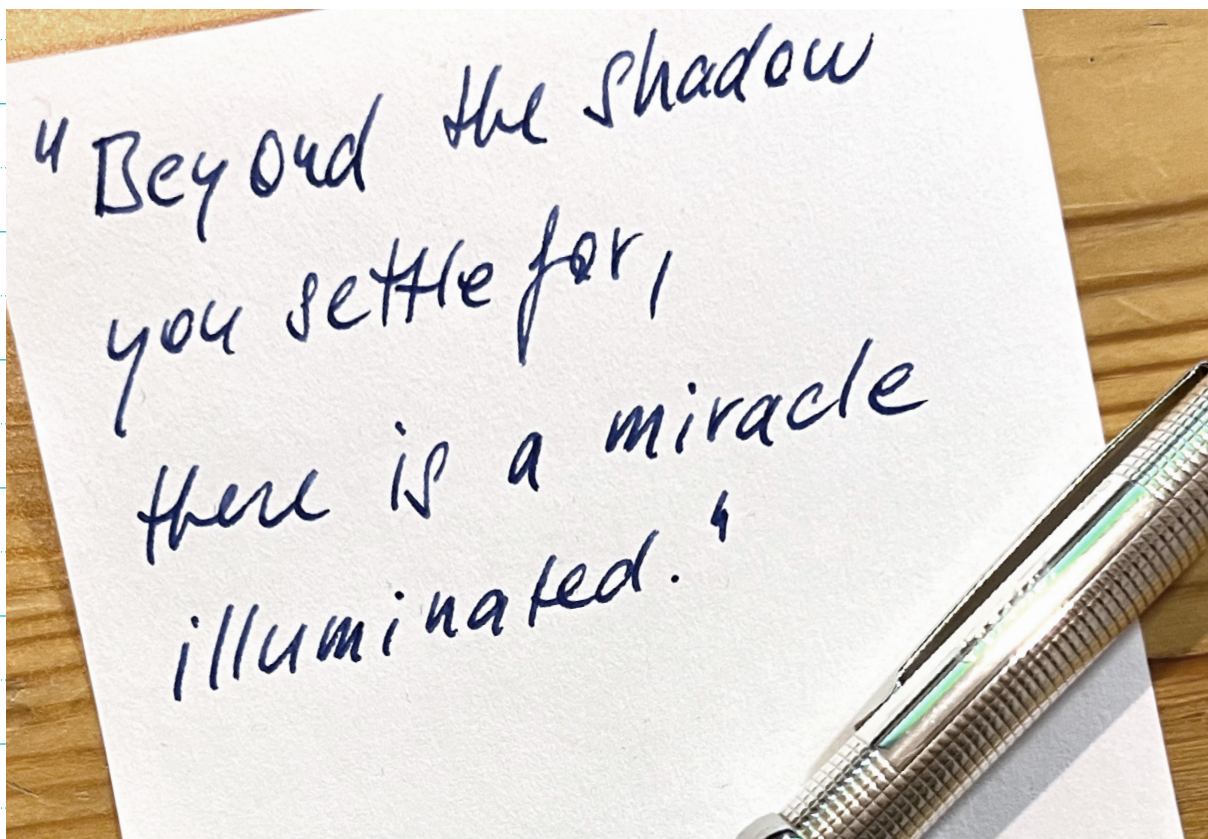 "Beyond the shadow
you settle for,
there is a miracle
illuminated."